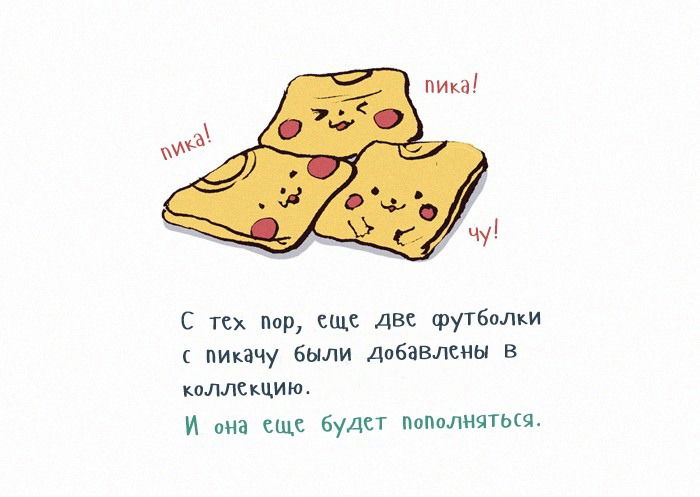 пика!
пика!
чу!
С тех пор, еще две футболки
с пикачу были добавлены в
коллекцию.
И она еще будет пополняться.